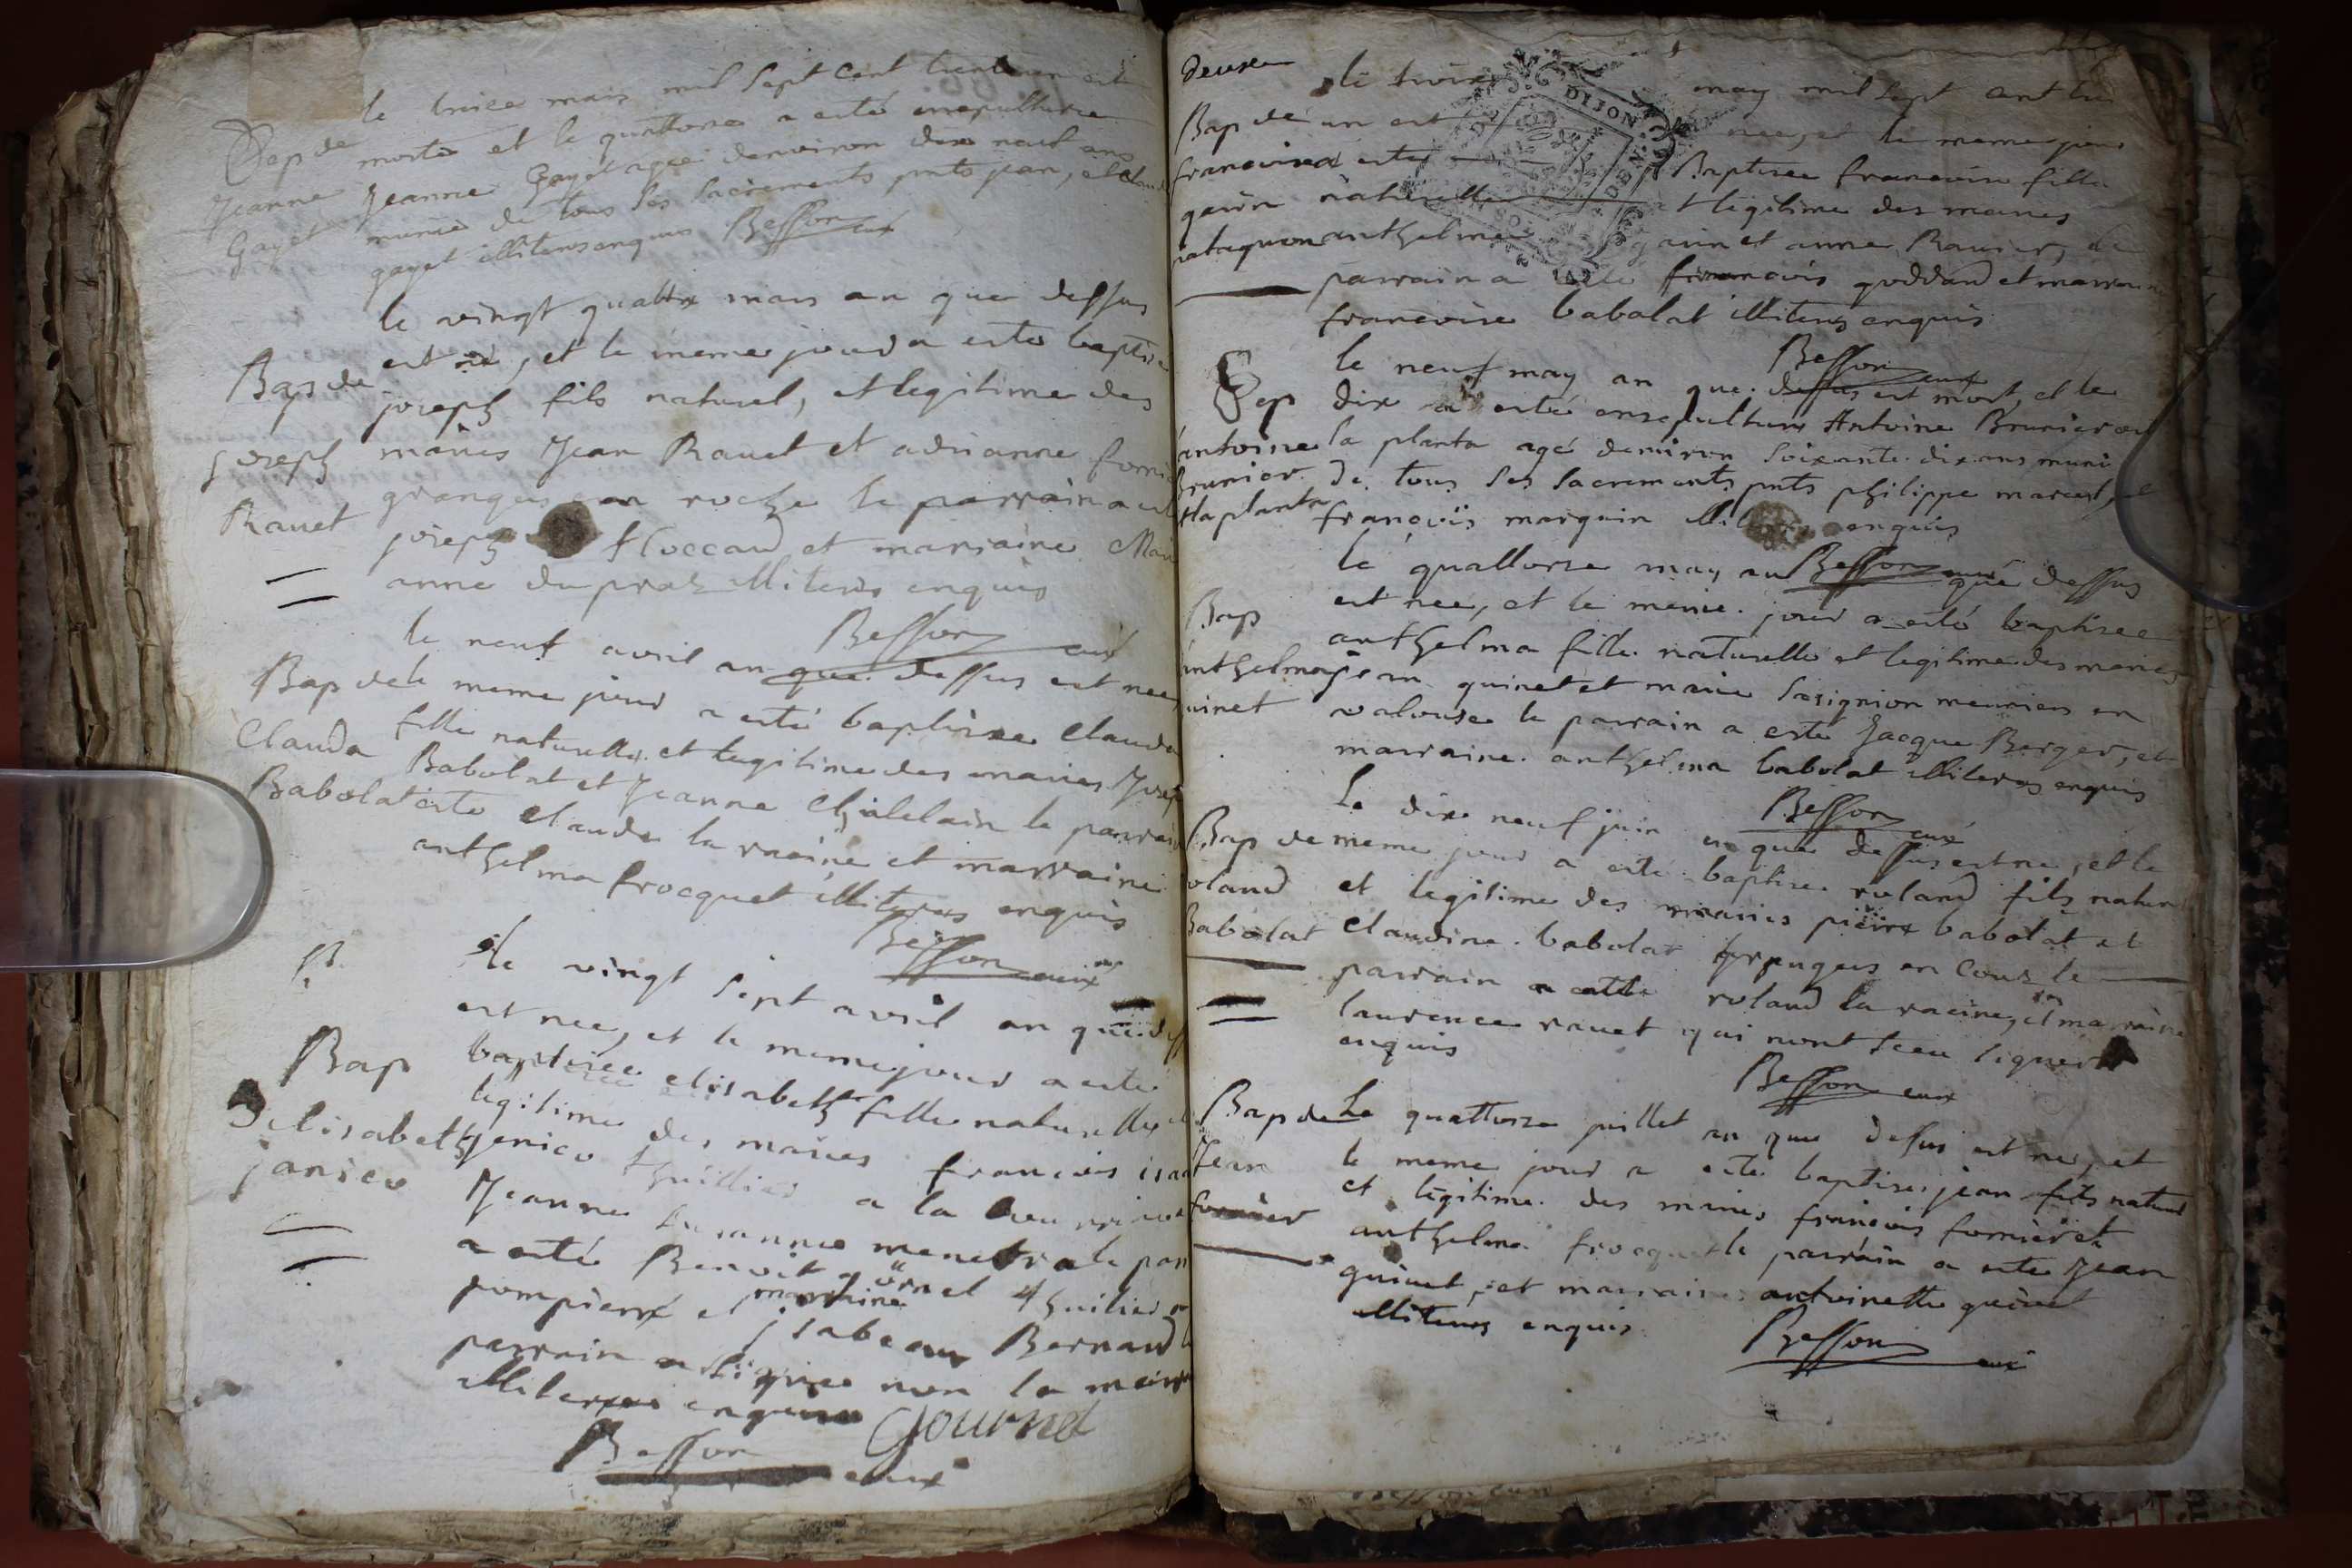 le treize mars mil sept cent trente
Sep de morte et le quattorse a esté ensepulturee
Jeanne Jeanne Gayet agée denviron dix neuf ans
Gayet munie de tous ses sacrements pnts jean, et
gayet illiteres enquis Besson curé
le vingt quattre mars an que dessus
Bap de est né, et le meme jour a esté baptisé
joseph joseph fils naturel, et legitime des
Ravet maries Jean Ravet et adrianne
grangers en roche le parrain a
joseph floccard et marraine
anne du praz illiteres enquis
Besson curé
le neuf avril an que dessus est nee
Bap de le meme jour a esté baptisee Clauda
Clauda fille naturelle et legitime des maries
Babolat Babolat et Jeanne Chatelain le parrain
esté Claude la racine et marraine
anthelma frocquet illiteres enquis
Besson curé
le vingt sept avril an que
est nee, et le meme jour a esté
Bap baptisée elisabeth fille naturelle et
delisabeth legitime des maries francois
janico Jenico thuillier a la
Jeanne le
a esté Benoit gournel thuilier
pompierre et marraine isabeau Bernard
parrain a signe non la
illiteres enquis Gournel
Besson curé
deuxe
le trois may mil sept cent
Bap de un est nee, et le meme jour
francoise esté Baptisee francoise fille
gavin naturelle et legitime des maries
anthelme gavin et anne Ravier, le
parrain a esté francois goddard et marraine
francoise babolat illiteres enquis
Besson curé
le neuf may an que dessus est mort, et le
Sep dix a esté ensepulturé Antoine Brunier
antoine la planta agé denviron soixante dix ans muni
Brunier de tous ses sacrements pnts philippe
laplanta francois marquin illiteres enquis
Besson curé
le quattorse may an que dessus
Bap est née, et le meme jour a esté baptisee
anthelma anthelma fille naturelle et legitime des maries
quinet jean quinet et marie meuniers en
valouse le parrain a esté Jacque Berger, et
marraine anthelma babolat illiteres enquis
Besson curé
Le dix neuf juin an que dessus est né, et le
Bap de meme jour a esté baptise roland fils naturel
roland et legitime des maries pierre babolat et
Babolat Claudine babolat grangers en Cour le
parrain a esté roland la racine, et marraine
laurence ravet qui nont sceu signer
enquis
Besson curé
Bap de Le quattorse juillet an que dessus est né, et
Jean le meme jour a esté baptise jean fils naturel
fornier et legitime des maries francois fornier et
anthelma frocquet le parrain a esté Jean
quinet, et marraine antoinette quinet
illiteres enquis
Besson curé